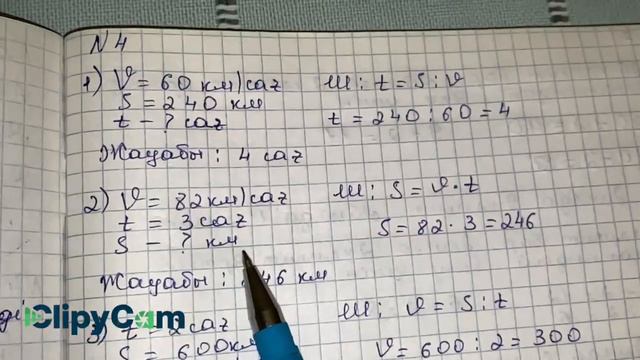 N4
1) V = 60 км/сағ   Ш: t = S : V
S = 240 км   t = 240 : 60 = 4
t - ? сағ
Жауабы: 4 сағ
2) V = 82 км/сағ   Ш: S = V · t
t = 3 сағ   S = 82 · 3 = 246
S - ? км
Жауабы: 46 км
3) t = 2 сағ   Ш: V = S : t
S = 600 км   V = 600 : 2 = 300
ClipyCam